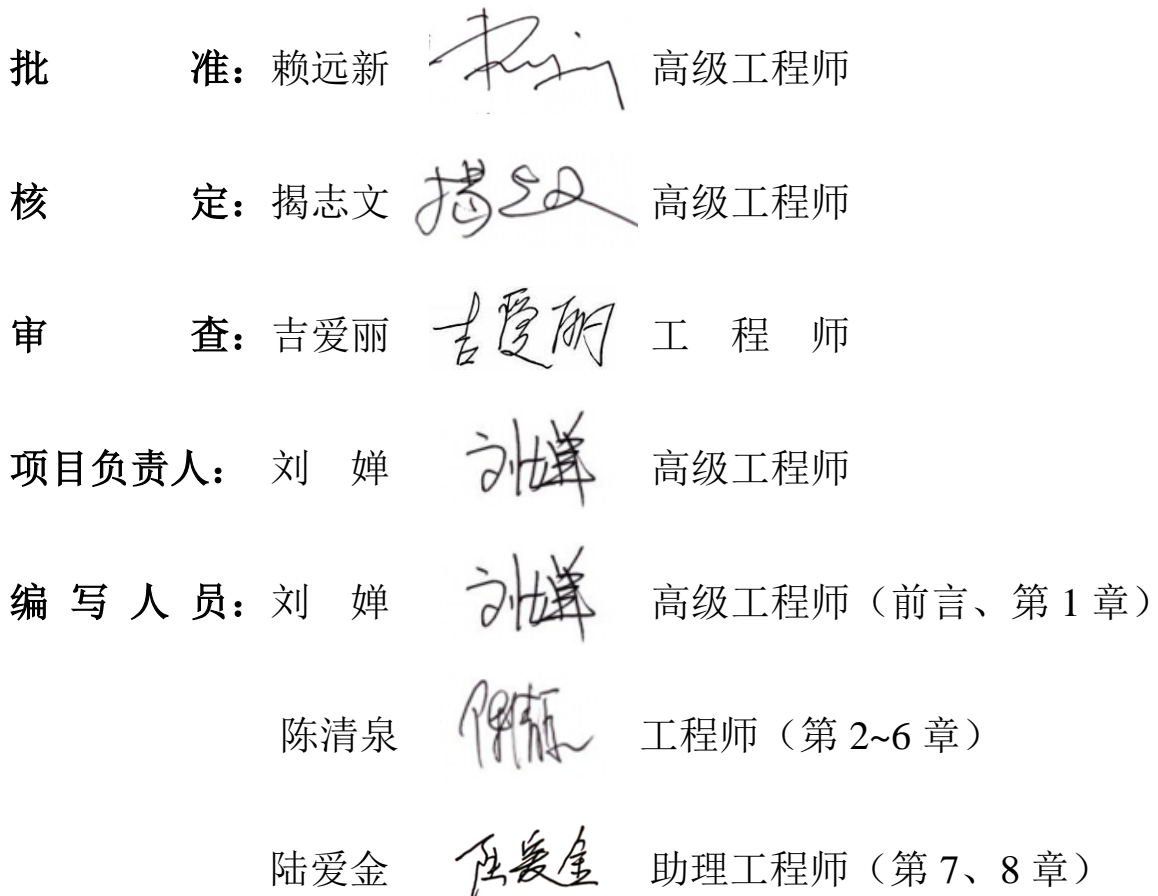 批 准：赖远新 高级工程师
核 定：揭志文 揭志文 高级工程师
审 查：吉爱丽 吉爱丽 工 程 师
项目负责人： 刘 婵 刘婵 高级工程师
编 写 人 员：刘 婵 刘婵 高级工程师（前言、第 1 章）
陈清泉 工程师（第 2~6 章）
陆爱金 陆爱金 助理工程师（第 7、8 章）